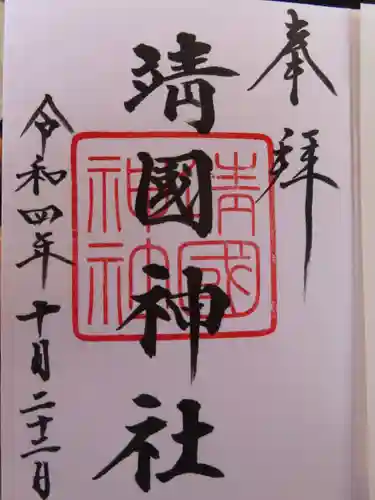 奉拝
靖國神社
靖國神社
令和四年十月二十二日